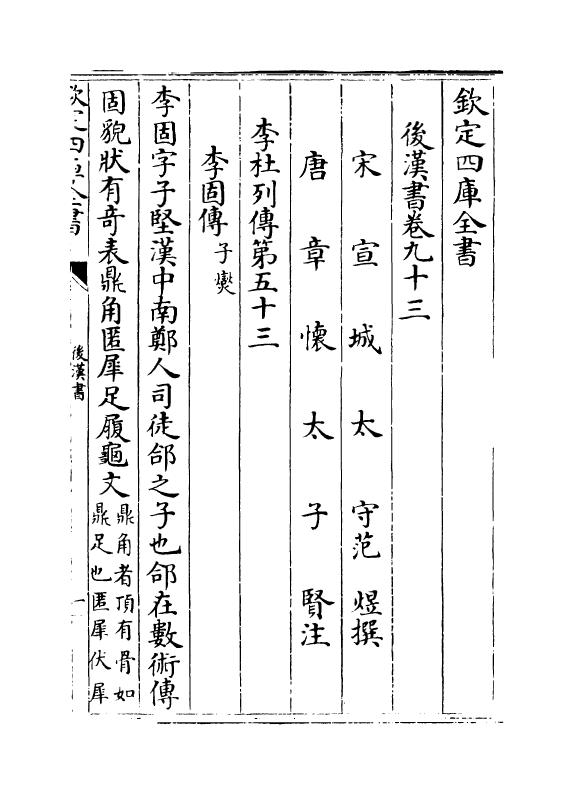 欽定四庫全書
後漢書卷九十三
宋宣城太守范煜撰
唐章懷太子賢注
李杜列傳第五十三
李固傳子燮
李固字子堅漢中南鄭人司徒郃之子也郃在數術傳
固貌狀有奇表鼎角匿犀足履龜文
鼎角者頂有骨如
鼎足也匿犀伏犀
欽定四庫全書
後漢書
一